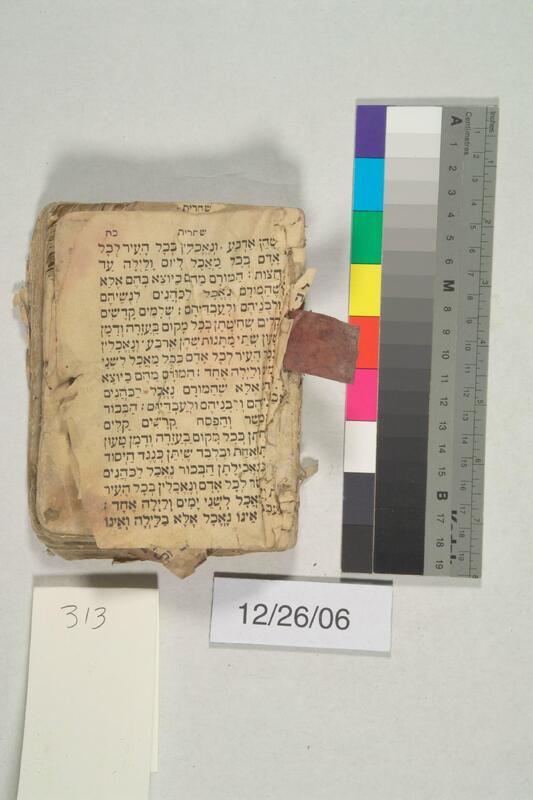 שחרית
שחרית כח
שהן ארבע. ונאכלין בכל העיר לכל
אדם בכל מאכל ליום ולילה עד
חצות: המורם מהם כיוצא בהם אלא
שהמורם נאכל לכהנים לנשיהם
ולבניהם ולעבדיהם: שלמים קדשים
שחיטתן בכל מקום בעזרה ודמן
שתי מתנות שהן ארבע ונאכלין
העיר לכל אדם בכל מאכל לשני
ולילה אחד: המורם מהם כיוצא
אלא שהמורם נאכל לכהנים
ולבניהם ולעבדיהם: הבכור
והפסח קדשים קלים
בכל מקום בעזרה ודמן טעון
אחת ובלבד שיתן כנגד היסוד
באכילתן הבכור נאכל לכהנים
לכל אדם ונאכלין בכל העיר
לשני ימים ולילה אחד:
אינו נאכל אלא בלילה ואינו
313
12/26/06
Inches
Centimetres
1 2 3 4 5 6 7 8 9 10 11 12 13 14 15 16 17 18 19
A
M
B